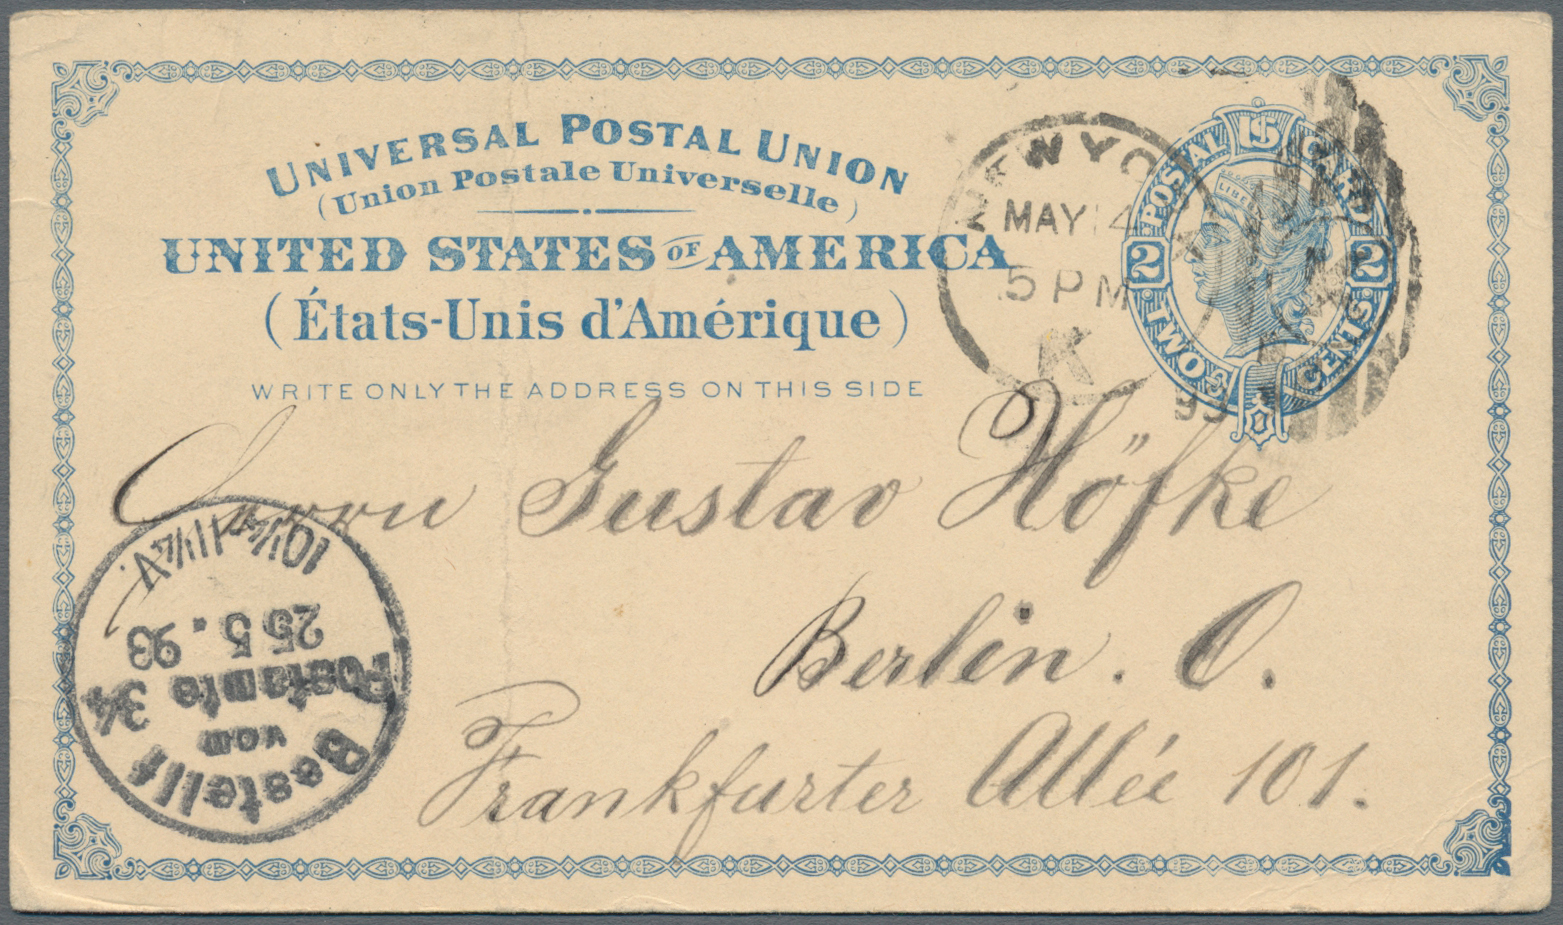 UNIVERSAL POSTAL UNION
(Union Postale Universelle)
UNITED STATES OF AMERICA
(États-Unis d'Amérique)
WRITE ONLY THE ADDRESS ON THIS SIDE
POSTAL CARD
LIBERTY
2 2
TWO CENTS
NEW YORK
MAY 14
5 PM
K
93
Herrn Gustav Höfke
Berlin. O.
Frankfurter Allée 101.
Bestellt
vom
Postamte 34
25 5. 93
10¼-11¼V.